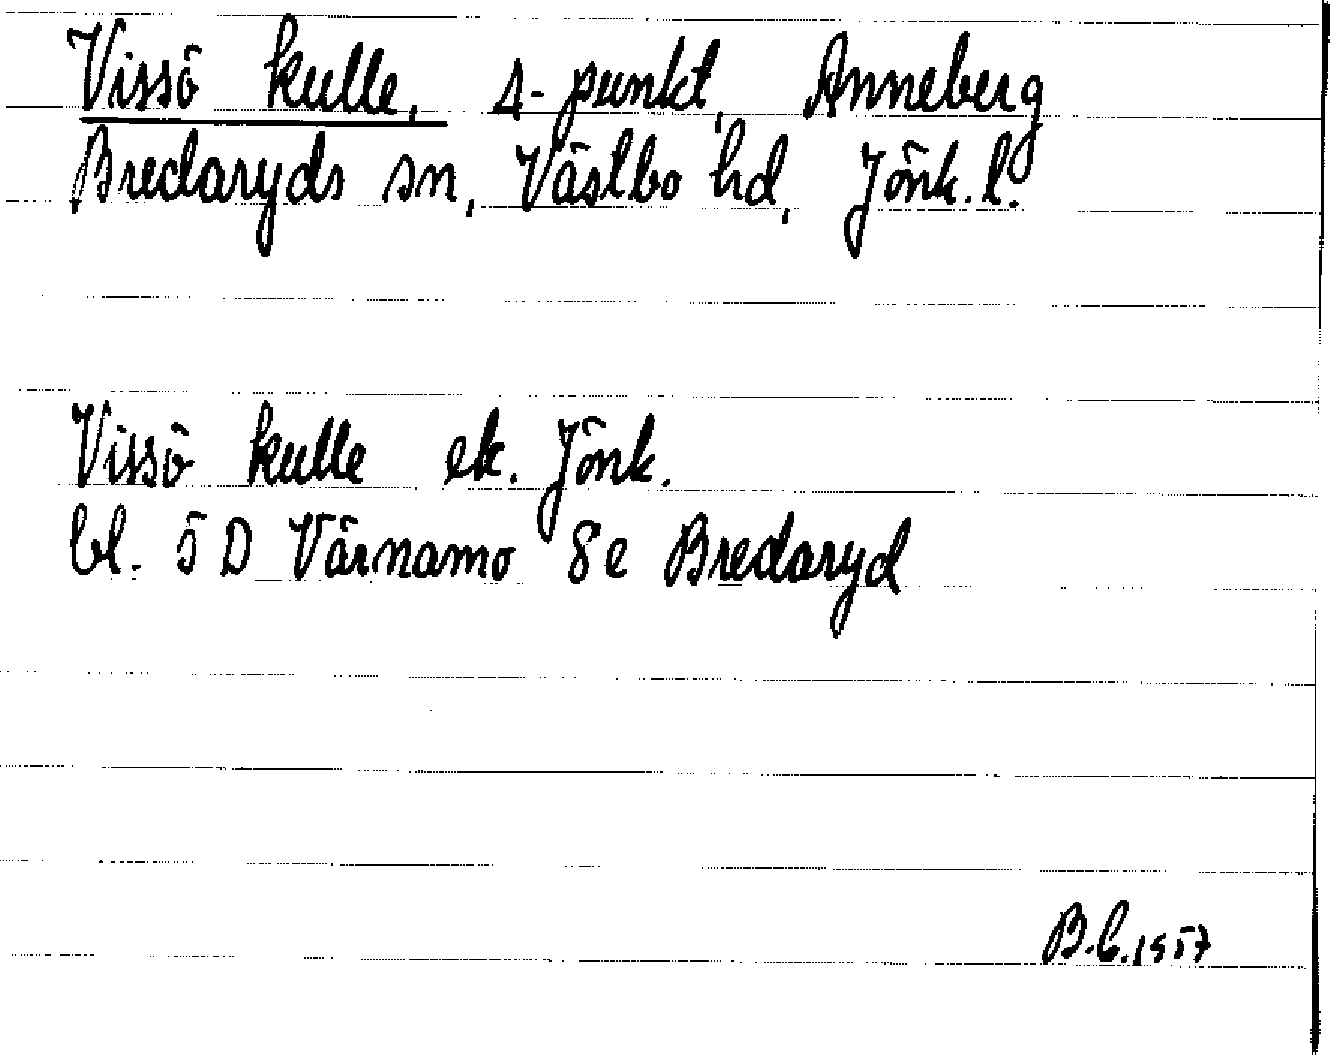 Vissö kulle, Δ-punkt, Anneberg
Bredaryds sn, Västbo hd, Jönk. l.
Vissö kulle ek. Jönk.
bl. 5 D Värnamo 8e Bredaryd
1957